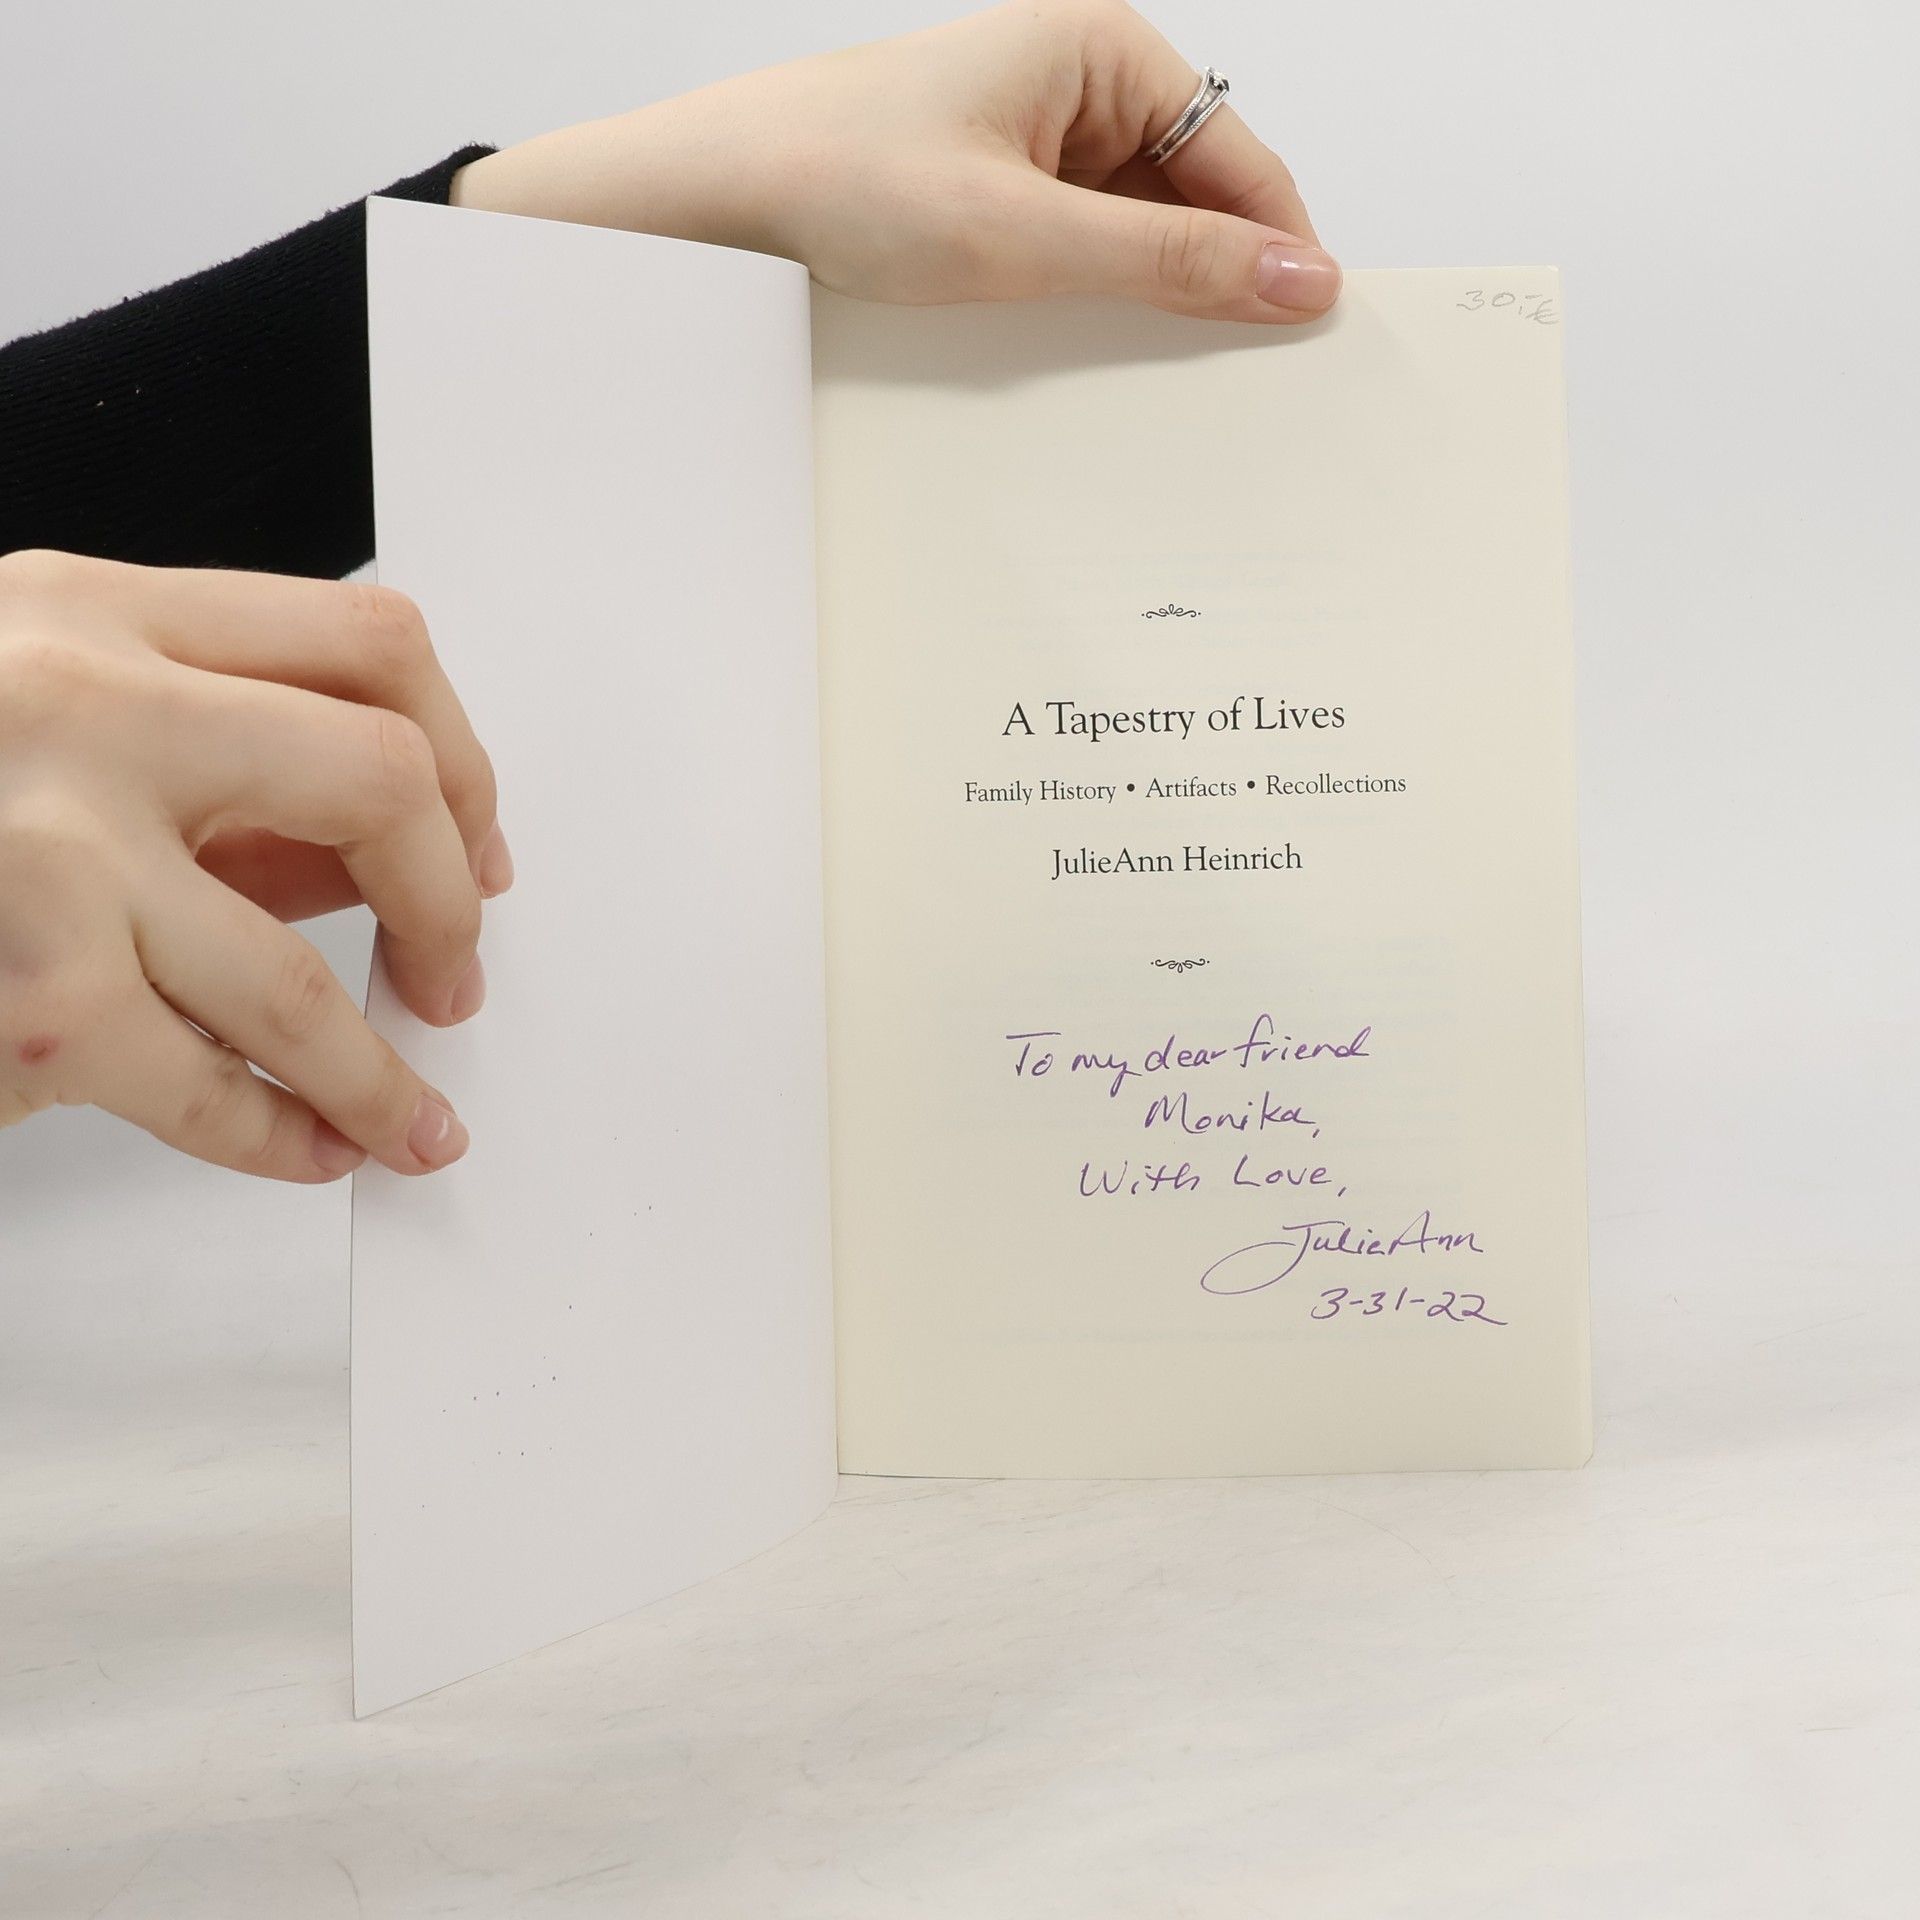 30,-€
A Tapestry of Lives
Family History • Artifacts • Recollections
JulieAnn Heinrich
To my dear friend
Monika,
With Love,
JulieAnn
3-31-22